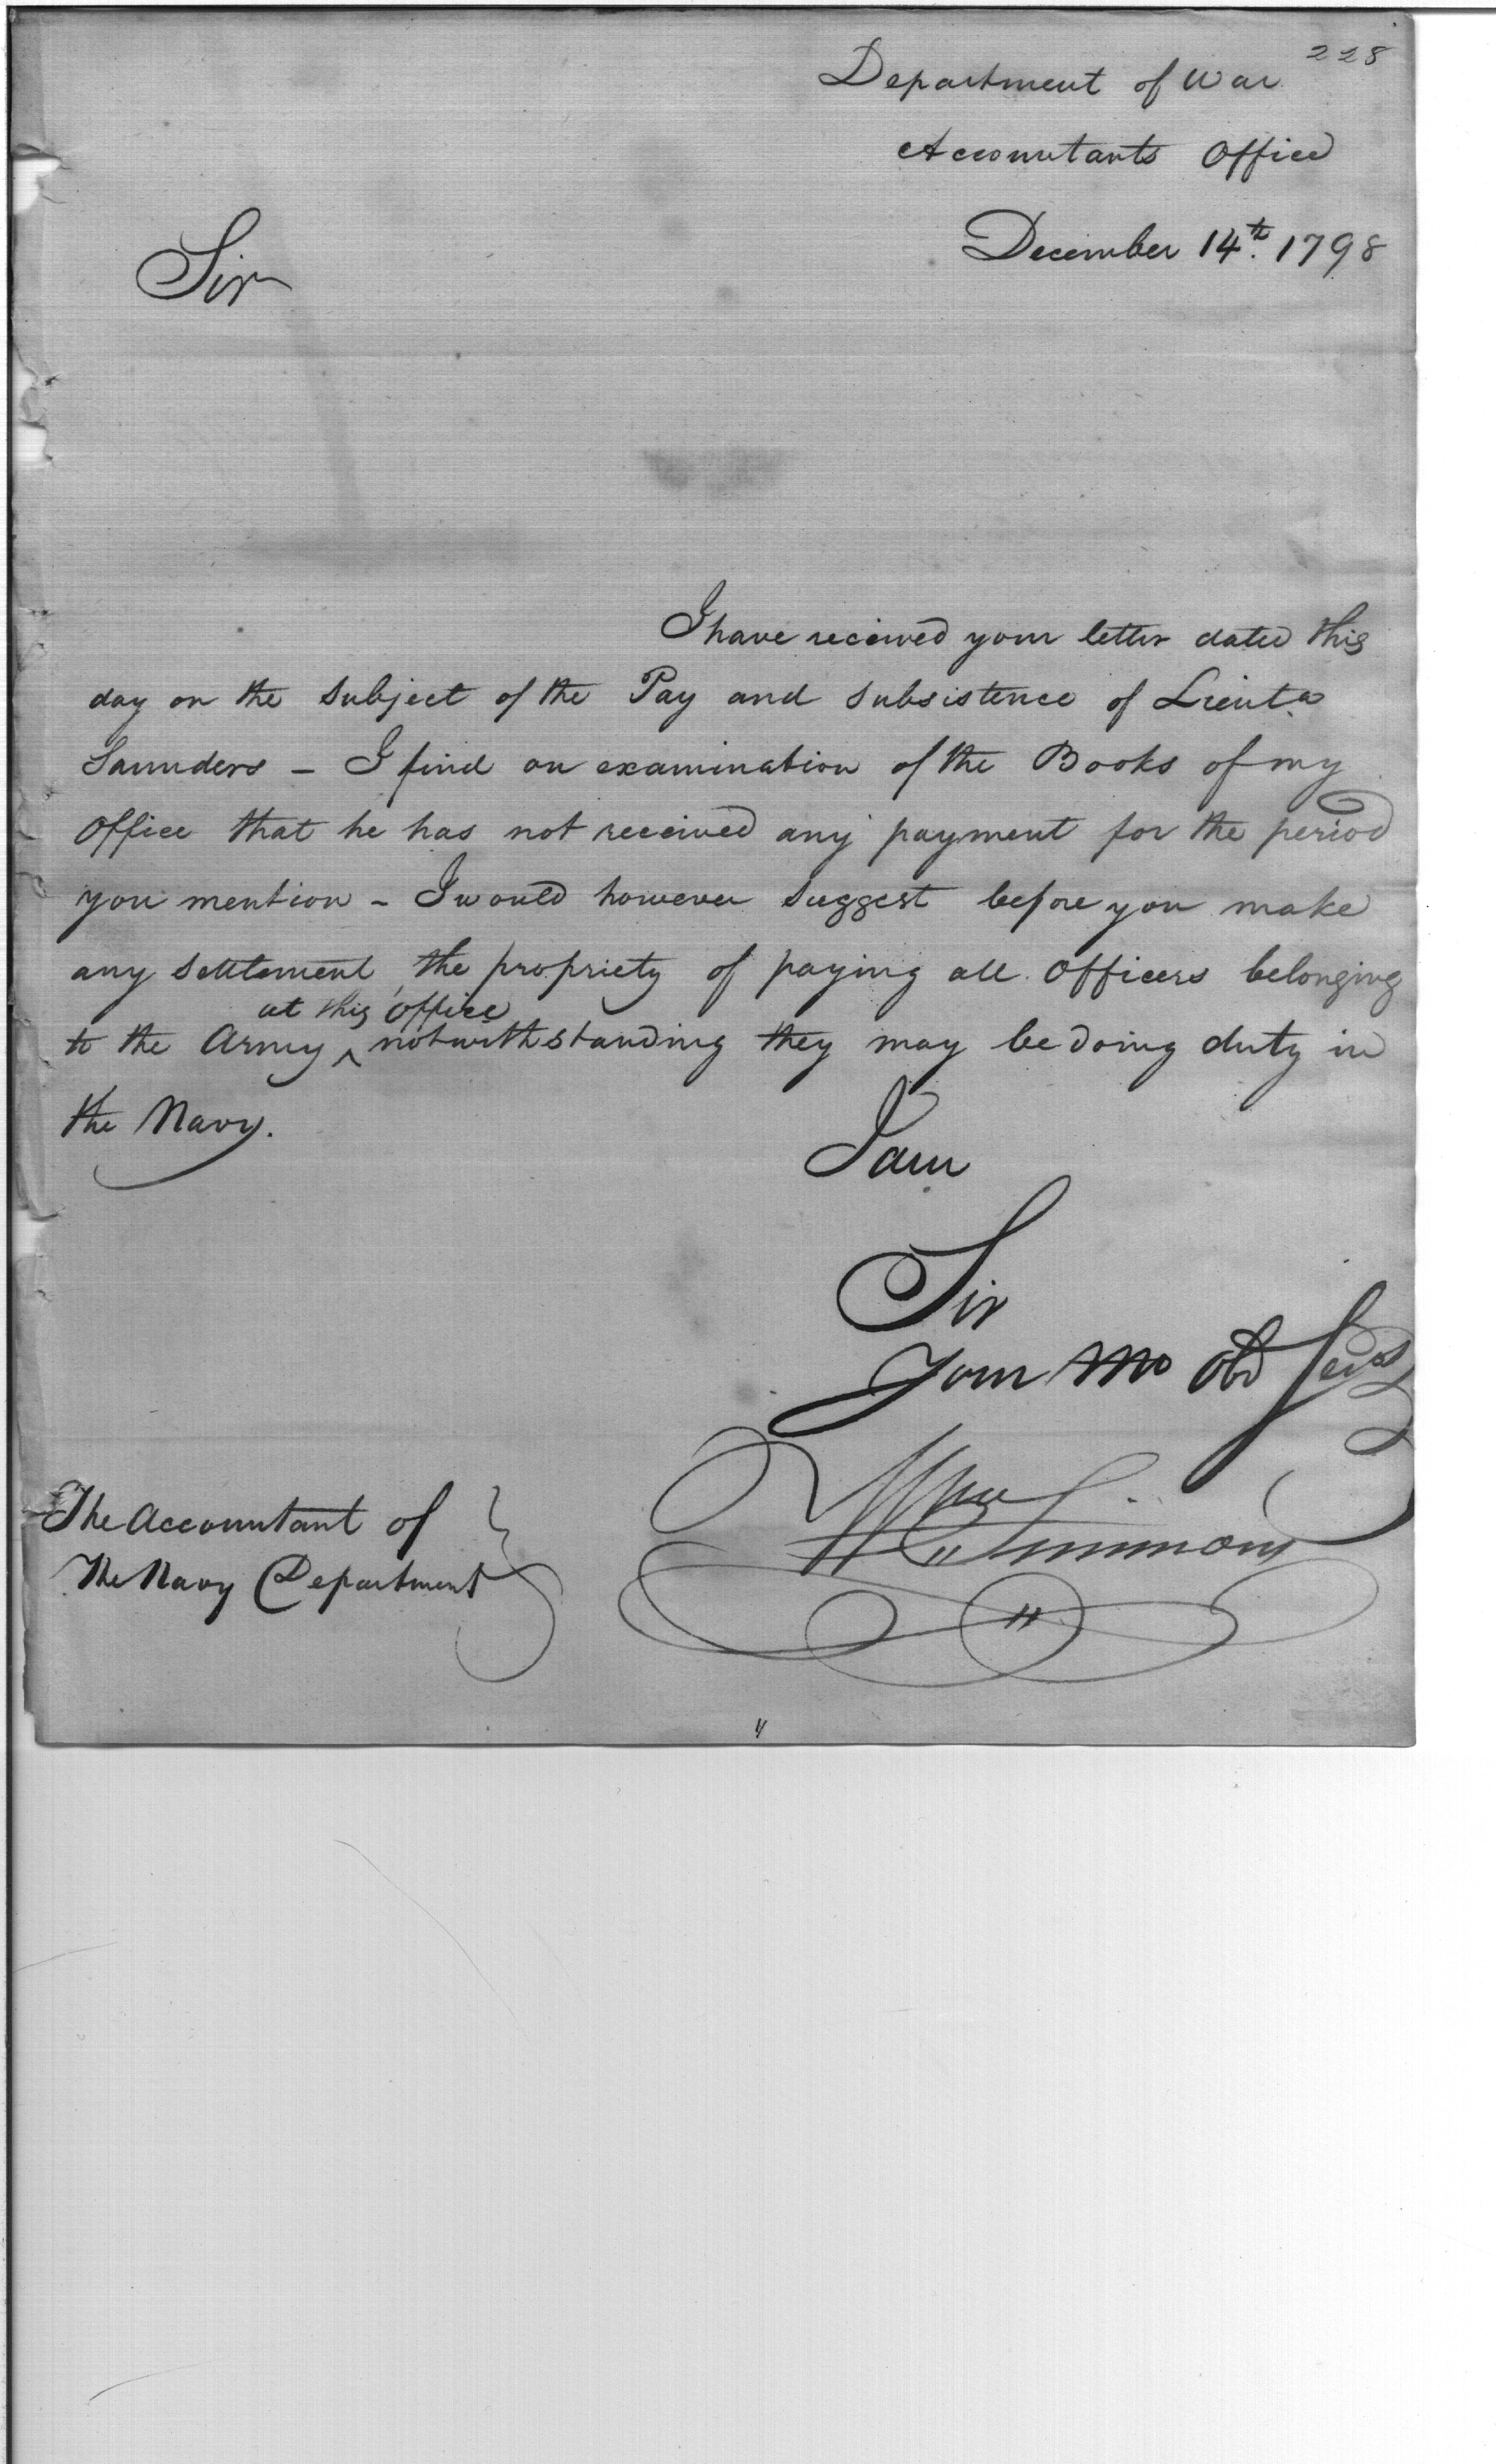 228
Department of War
Accountants Office
December 14th. 1798
Sir
I have received your letter dated this
day on the subject of the Pay and subsistence of Lieut.
Saunders – I find on examination of the Books of my
Office that he has not received any payment for the period
you mention – I would however suggest before you make
any settlement, the propriety of paying all Officers belonging
at this office
to the Army ^ notwithstanding they may be doing duty in
the Navy.
I am
Sir
Your Mo Obd Servt
Wm Simmons
The Accountant of
The Navy Department